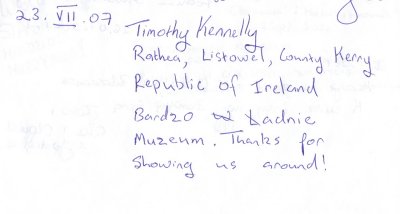 23. VII. 07 Timothy Kennelly
Rathea, Listowel, County Kerry
Republic of Ireland
Bardzo Ładnie
Muzeum. Thanks for
Showing us around!